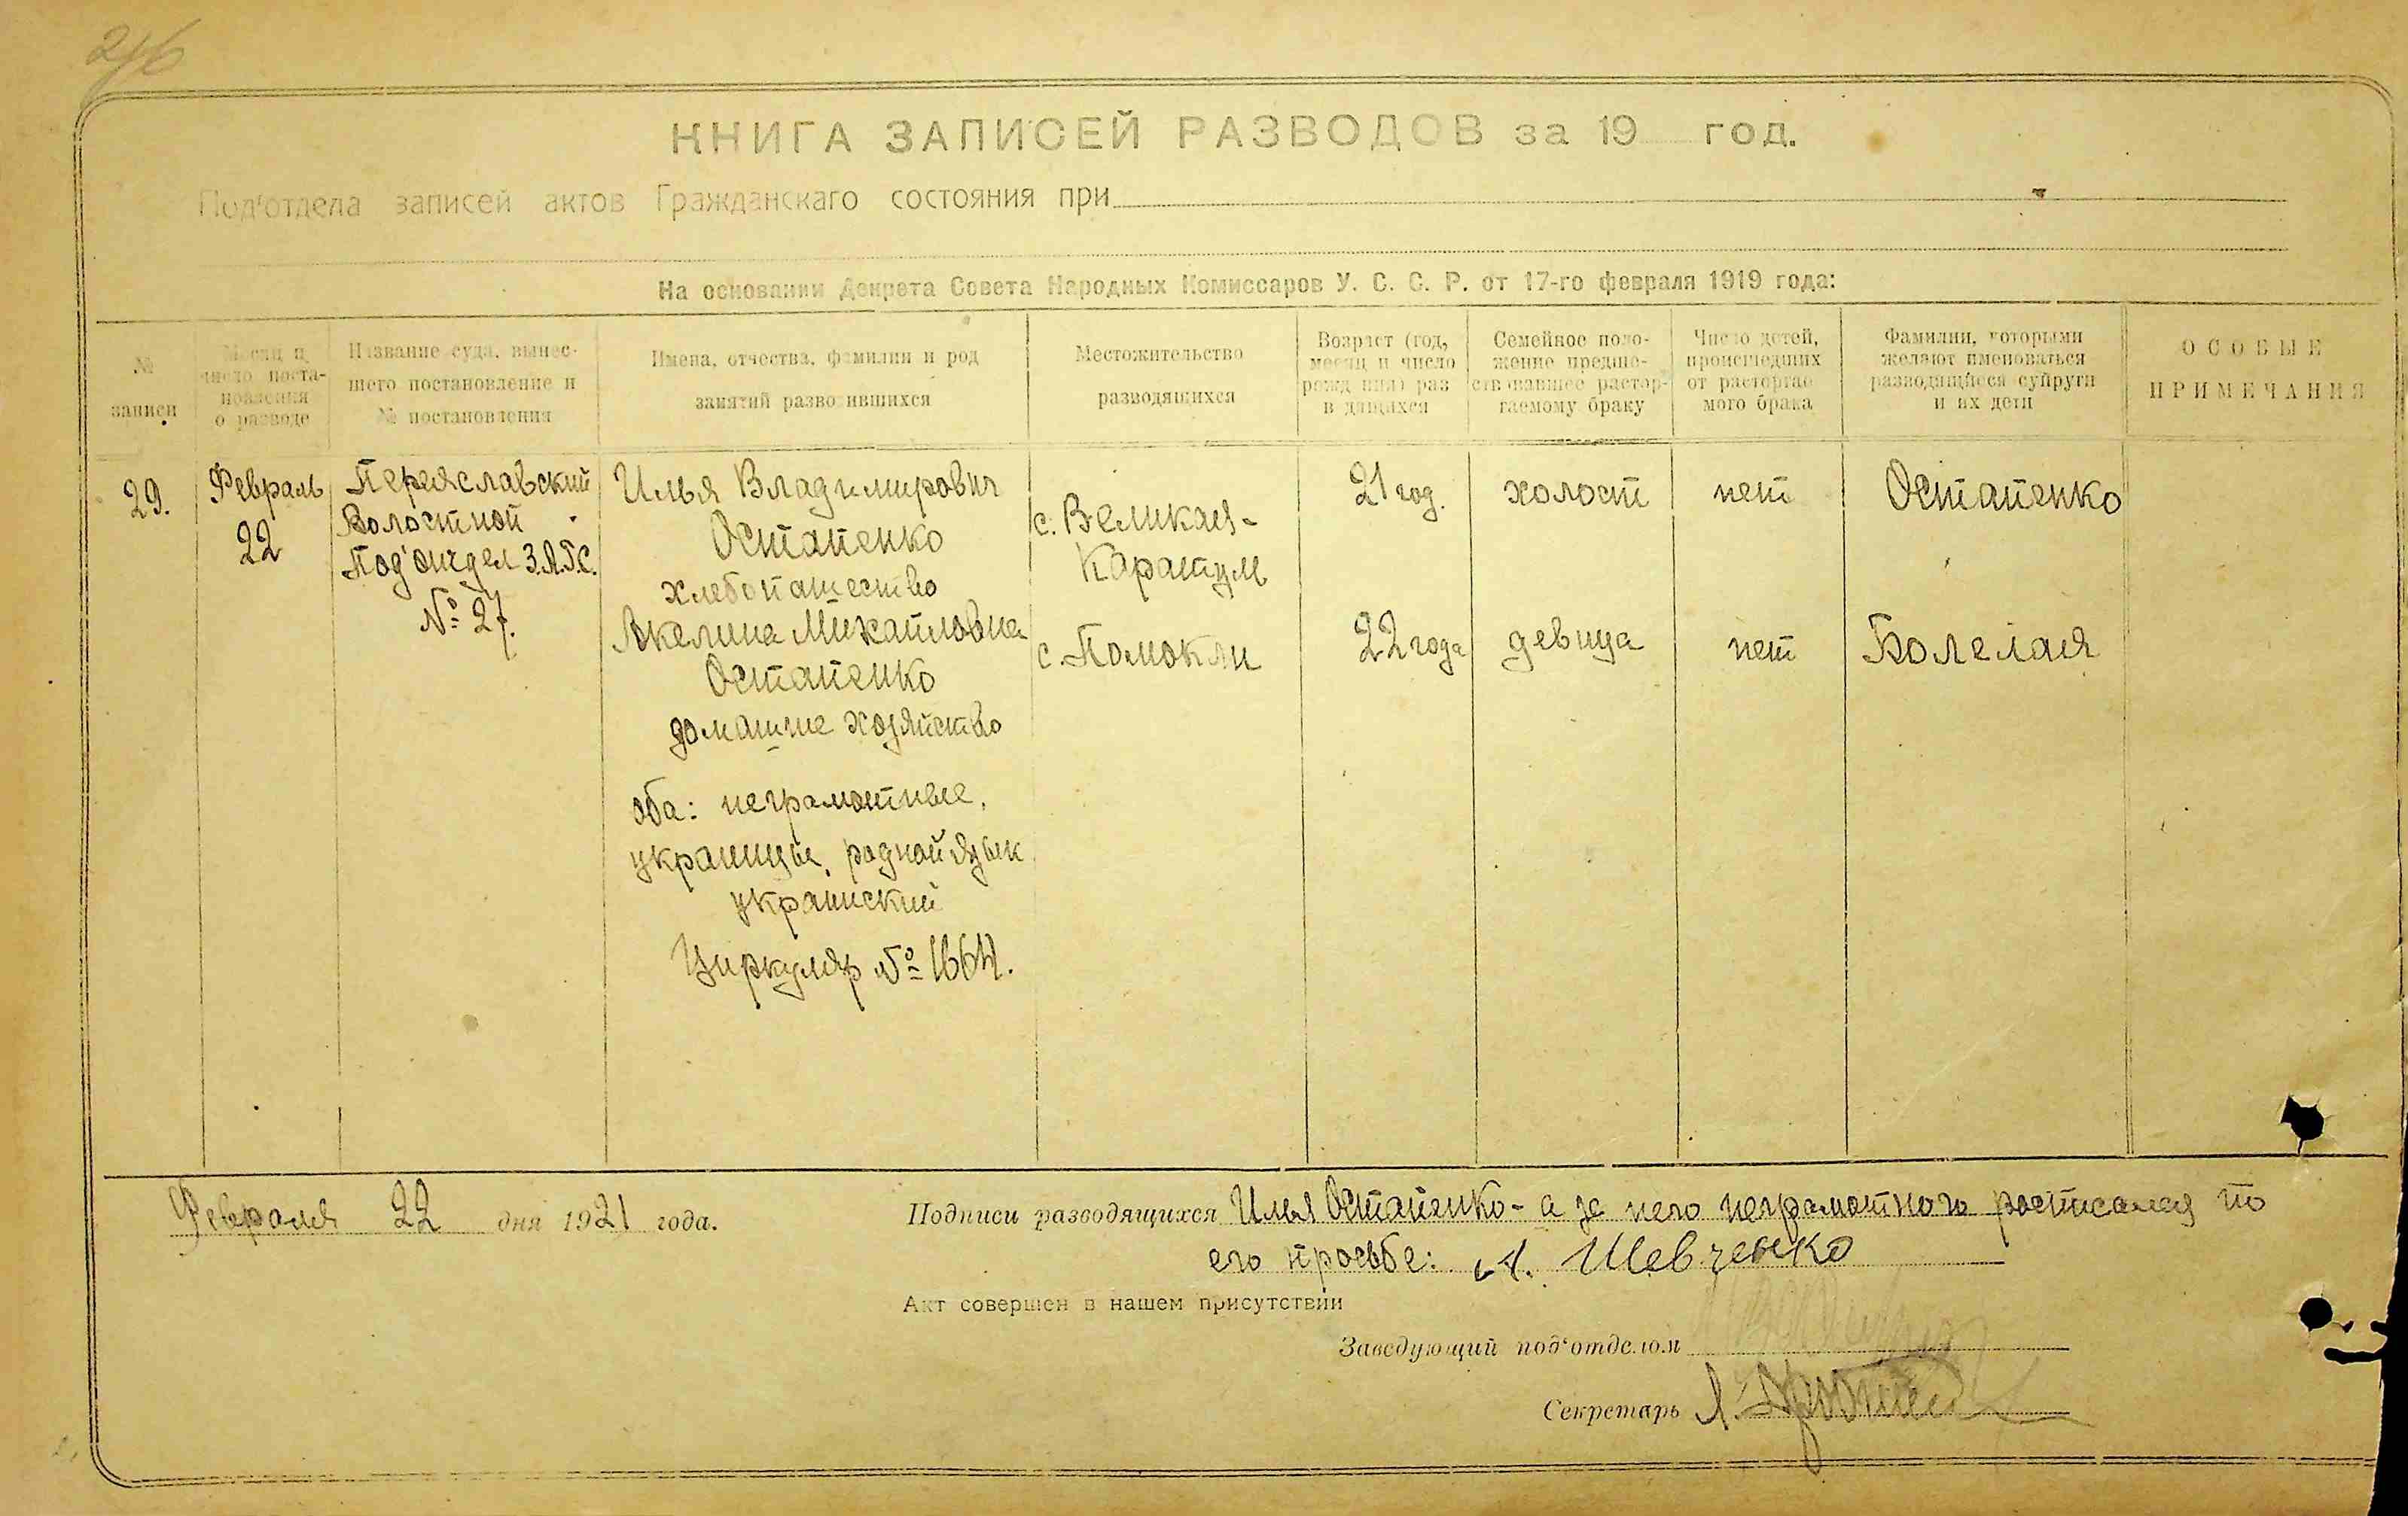 246
КНИГА ЗАПИСЕЙ РАЗВОДОВ за 19 год.
Под'отдела записей актов Гражданскаго состояния при
На основании Декрета Совета Народных Комиссаров У. С. С. Р. от 17-го февраля 1919 года:
№ записи
Месяц и число поста-новления о разводе
Название суда, вынес-шего постановление и № постановления
Имена, отчества, фамилии и род занятий разводившихся
Местожительство разводящихся
Возраст (год, месяц и число рождения) раз-водящихся
Семейное поло-жение предше-ствовавшее растор-гаемому браку
Число детей, происшедших от расторгае-мого брака
Фамилии, которыми желают именоваться разводящиеся супруги и их дети
ОСОБЫЕ ПРИМЕЧАНИЯ
29.
Февраль
22
Переяславский
Волостной
Под'отдел З.А.Г.С.
№ 27.
Илья Владимирович
Остапенко
хлебопашество
с. Великая-
Каратуль
21 год.
холост
нет
Остапенко
Акелина Михайловна
Остапенко
домашнее хозяйство
с. Помокли
22 года
девица
нет
Болелая
оба: неграмотные,
украинцы, родной язык
украинский
Циркуляр № 1664.
Февраля 22 дня 1921 года.
Подписи разводящихся Илья Остапенко - а за него неграмотного росписался по
его просьбе: А. Шевченко
Акт совершен в нашем присутствии
Заведующий под'отделом
Секретарь